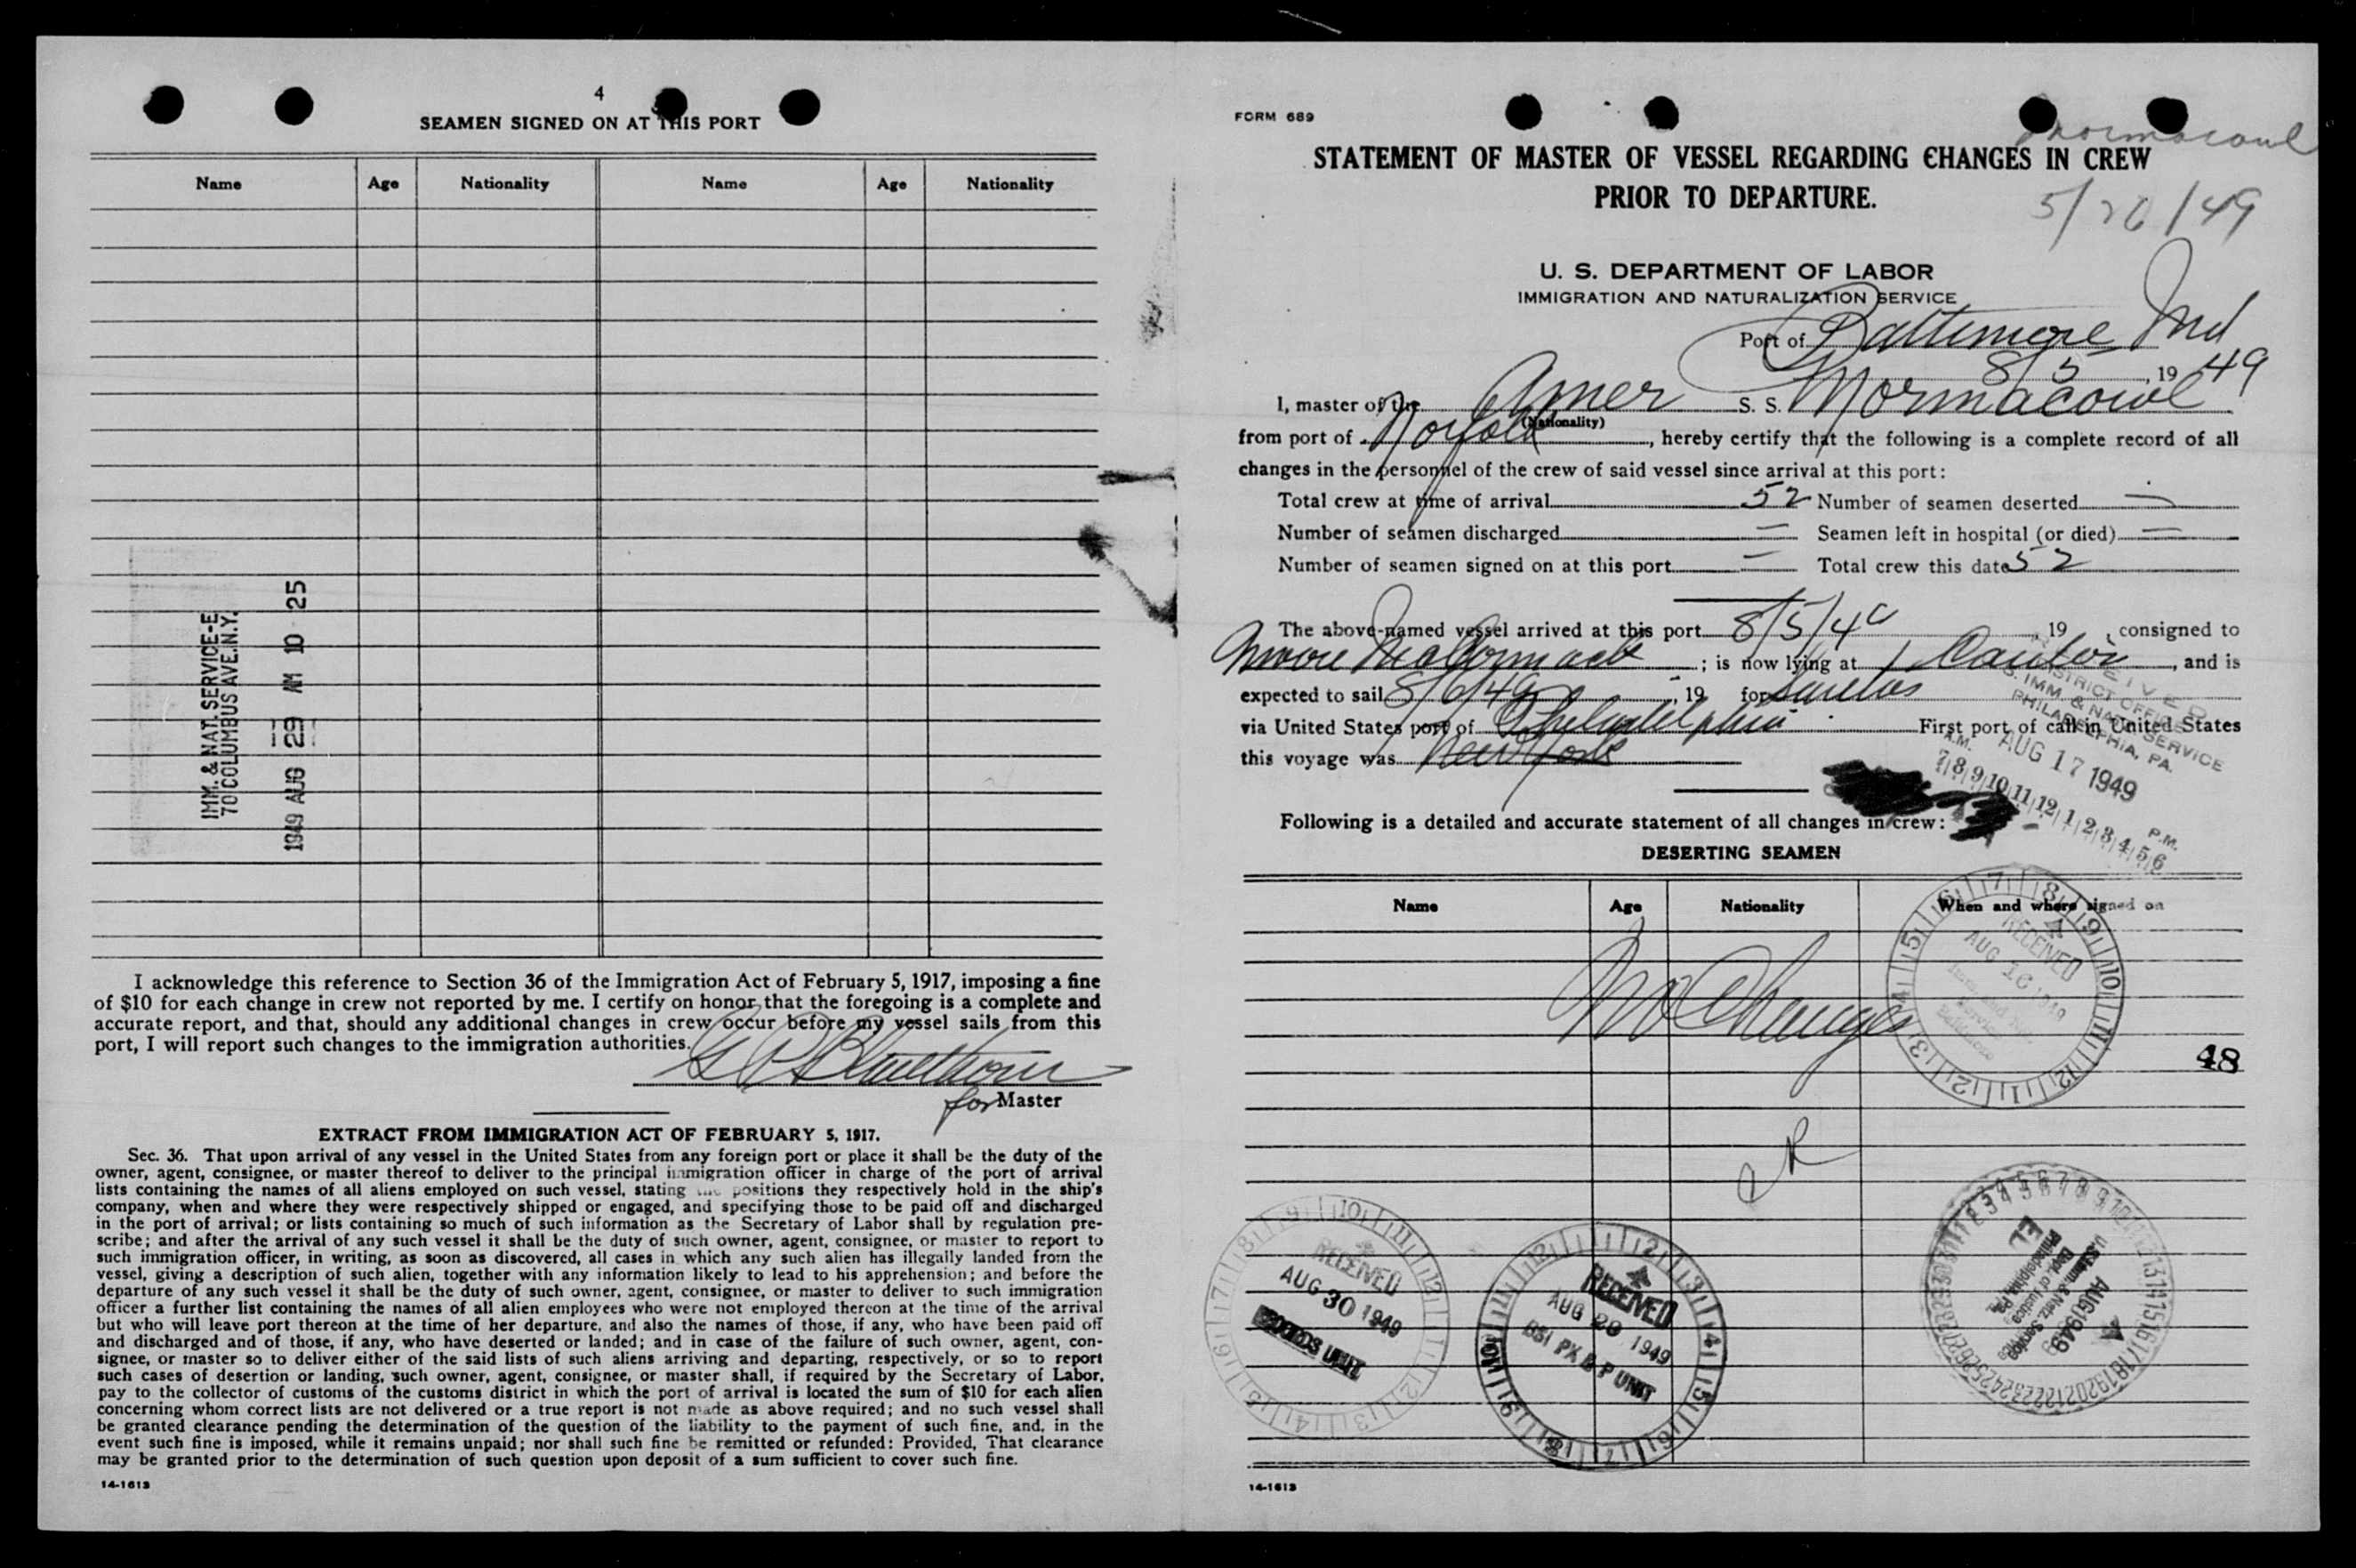 4
SEAMEN SIGNED ON AT THIS PORT
Name Age Nationality Name Age Nationality
IMM. & NAT. SERVICE-E
70 COLUMBUS AVE.N.Y.
1949 AUG 29 AM 10 25
I acknowledge this reference to Section 36 of the Immigration Act of February 5, 1917, imposing a fine
of $10 for each change in crew not reported by me. I certify on honor that the foregoing is a complete and
accurate report, and that, should any additional changes in crew occur before my vessel sails from this
port, I will report such changes to the immigration authorities.
for Master
EXTRACT FROM IMMIGRATION ACT OF FEBRUARY 5, 1917.
Sec. 36. That upon arrival of any vessel in the United States from any foreign port or place it shall be the duty of the
owner, agent, consignee, or master thereof to deliver to the principal immigration officer in charge of the port of arrival
lists containing the names of all aliens employed on such vessel, stating the positions they respectively hold in the ship's
company, when and where they were respectively shipped or engaged, and specifying those to be paid off and discharged
in the port of arrival; or lists containing so much of such information as the Secretary of Labor shall by regulation pre-
scribe; and after the arrival of any such vessel it shall be the duty of such owner, agent, consignee, or master to report to
such immigration officer, in writing, as soon as discovered, all cases in which any such alien has illegally landed from the
vessel, giving a description of such alien, together with any information likely to lead to his apprehension; and before the
departure of any such vessel it shall be the duty of such owner, agent, consignee, or master to deliver to such immigration
officer a further list containing the names of all alien employees who were not employed thereon at the time of the arrival
but who will leave port thereon at the time of her departure, and also the names of those, if any, who have been paid off
and discharged and of those, if any, who have deserted or landed; and in case of the failure of such owner, agent, con-
signee, or master so to deliver either of the said lists of such aliens arriving and departing, respectively, or so to report
such cases of desertion or landing, such owner, agent, consignee, or master shall, if required by the Secretary of Labor,
pay to the collector of customs of the customs district in which the port of arrival is located the sum of $10 for each alien
concerning whom correct lists are not delivered or a true report is not made as above required; and no such vessel shall
be granted clearance pending the determination of the question of the liability to the payment of such fine, and, in the
event such fine is imposed, while it remains unpaid; nor shall such fine be remitted or refunded: Provided, That clearance
may be granted prior to the determination of such question upon deposit of a sum sufficient to cover such fine.
14-1613
FORM 689
Mormacowl
STATEMENT OF MASTER OF VESSEL REGARDING CHANGES IN CREW
PRIOR TO DEPARTURE.
5/20/49
U. S. DEPARTMENT OF LABOR
IMMIGRATION AND NATURALIZATION SERVICE
Port of Baltimore Md
8/5, 1949
I, master of the Amer S. S. Mormacowl
(Nationality)
from port of Norfolk, hereby certify that the following is a complete record of all
changes in the personnel of the crew of said vessel since arrival at this port:
Total crew at time of arrival 52 Number of seamen deserted —
Number of seamen discharged — Seamen left in hospital (or died) —
Number of seamen signed on at this port — Total crew this date 52
The above-named vessel arrived at this port 8/5/49, 19 , consigned to
Moore McCormack; is now lying at 1 Canton, and is
expected to sail 8/6/49, 19 for Santos
via United States port of Philadelphia First port of call in United States
this voyage was New York
RECEIVED
DISTRICT OFFICE
U.S. IMM. & NAT. SERVICE
PHILADELPHIA, PA.
AUG 17 1949
A.M. P.M.
7 8 9 10 11 12 1 2 3 4 5 6
Following is a detailed and accurate statement of all changes in crew:
DESERTING SEAMEN
Name Age Nationality When and where signed on
No Changes
RECEIVED
48
RECEIVED
AUG 30 1949
RECORDS UNIT
RECEIVED
AUG 29 1949
BSI PX & P UNIT
Dept. of Justice
Philadelphia, Pa.
14-1613